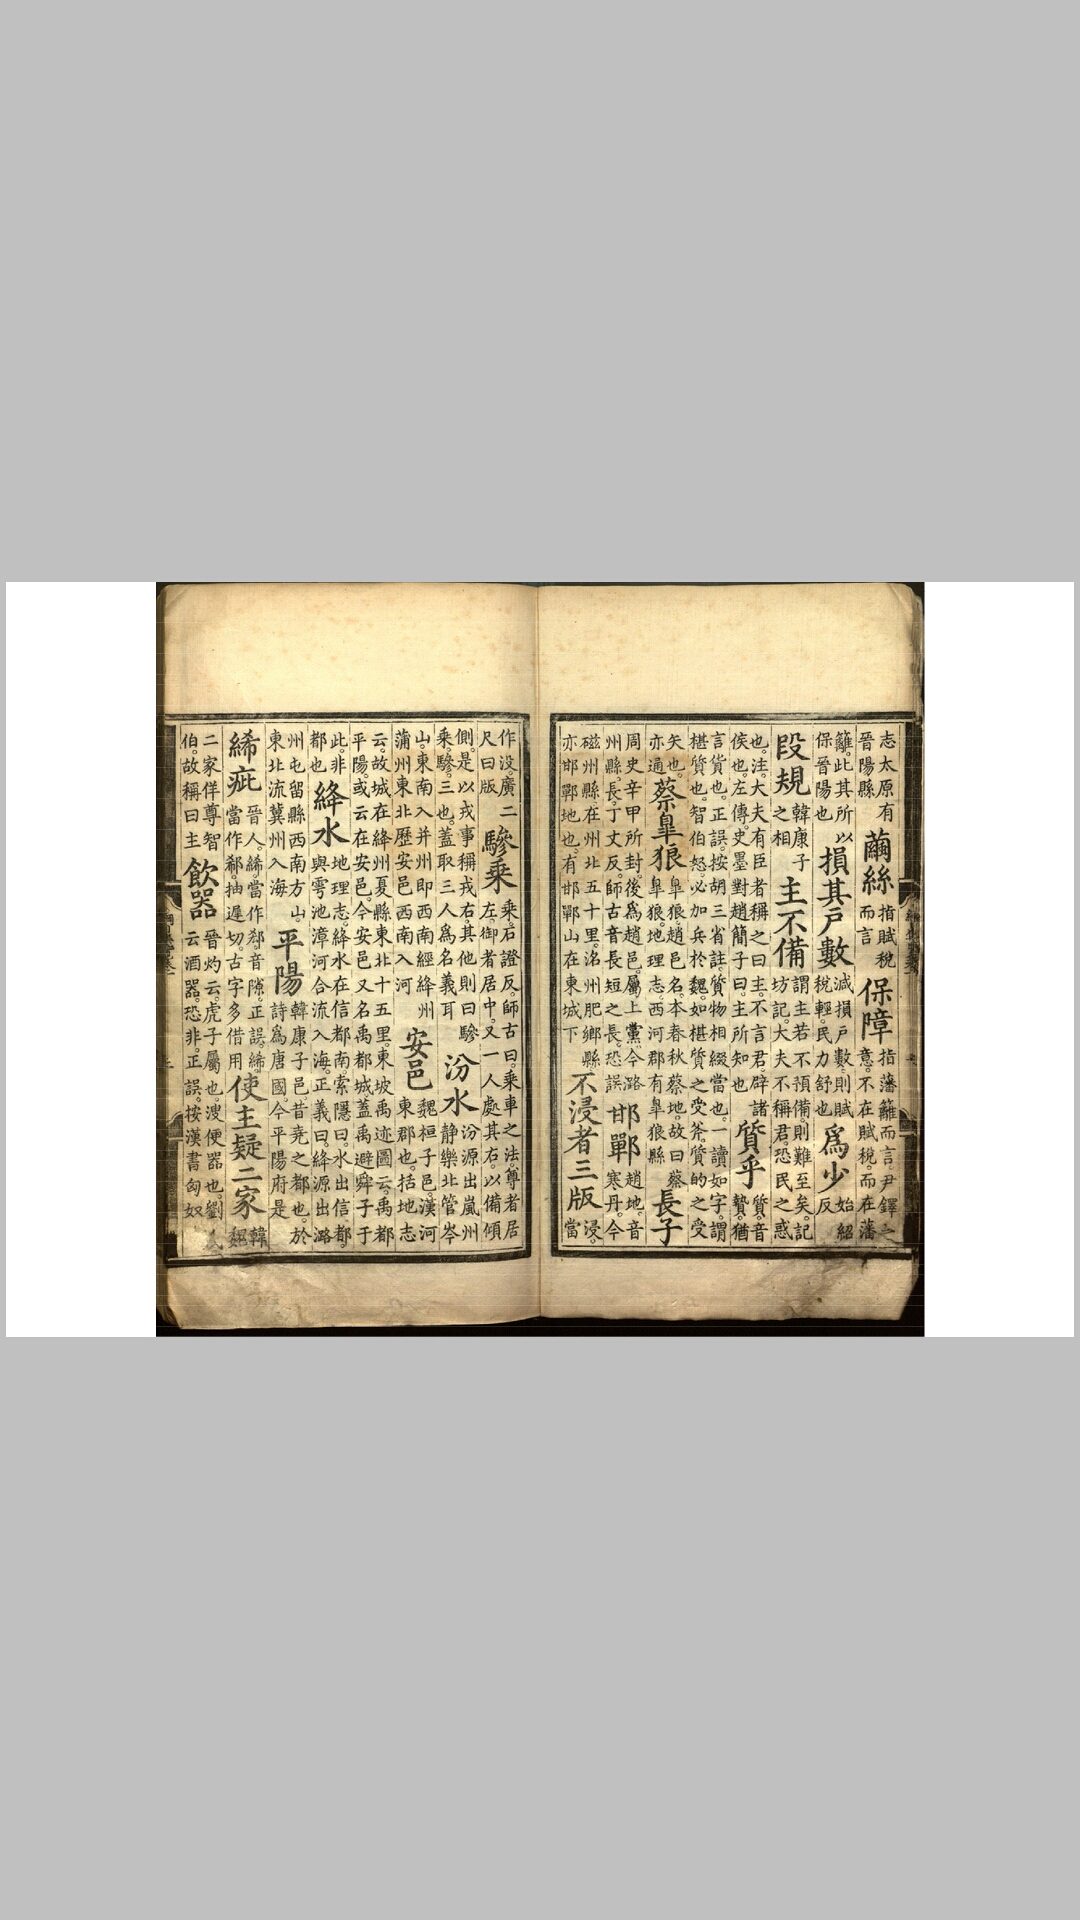 志太原有晉陽縣繭絲指賦稅而言保障指藩籬而言。尹鐸之意。不在賦稅。而在藩
籬。此其所以保晉陽也損其戶數減損戶數。則賦稅輕。民力舒也爲少始紹反
段規韓康子之相主不備謂主若不預備。則難至矣。記坊記。大夫不稱君。恐民之惑
也。注。大夫有臣者稱之曰主。不言君。辟諸侯也。左傳。史墨對趙簡子曰。主所知也質乎質音贄。猶
言貨也。正誤。按胡三省註。質物相綴當也。一讀如字。謂椹質也。智伯怒。必加兵於魏。如椹質之受斧。質的之受
矢也。亦通蔡皐狼皐狼。趙邑名。本春秋蔡地。故曰蔡皐狼。地理志。西河郡有皐狼縣長子
周史辛甲所封。後爲趙邑。屬上黨。今潞州縣。長。丁丈反。師古音長短之長。恐誤邯鄲趙地。音寒丹。今
磁州縣在州北五十里。洺州肥鄉縣亦邯鄲地也。有邯鄲山在東城下不浸者三版浸。當
作没。廣二尺曰版驂乘乘。石證反。師古曰。乘車之法。尊者居左。御者居中。又一人處其右。以備傾
側。是以戎事稱戎右。其他則曰驂乘。驂。三也。蓋取三人爲名義耳汾水汾源出嵐州靜樂北管岑
山。東南入并州。即西南經絳州蒲州東北歷安邑西南入河安邑魏桓子邑。漢河東郡也。括地志
云。故城在絳州夏縣東北十五里。東坡禹迹圖云。禹都平陽。或云在安邑。今安邑又名禹都城。蓋禹避舜子于
此。非都也絳水地理志。絳水在信都南。索隱曰。水出信都。與雩池漳河合流入海。正義曰。絳源出潞
州屯留縣西南方山。東北流冀州入海平陽韓康子邑。昔堯之都也。於詩爲唐國。今平陽府是
絺疵晉人。絺。當作郄。音隙。正誤。絺。當作郗。抽遲切。古字多借用使主疑二家韓魏
二家佯尊智伯。故稱曰主飲器晉灼云。虎子屬也。溲便器也。劉云酒器。恐非。正誤。按漢書匈奴